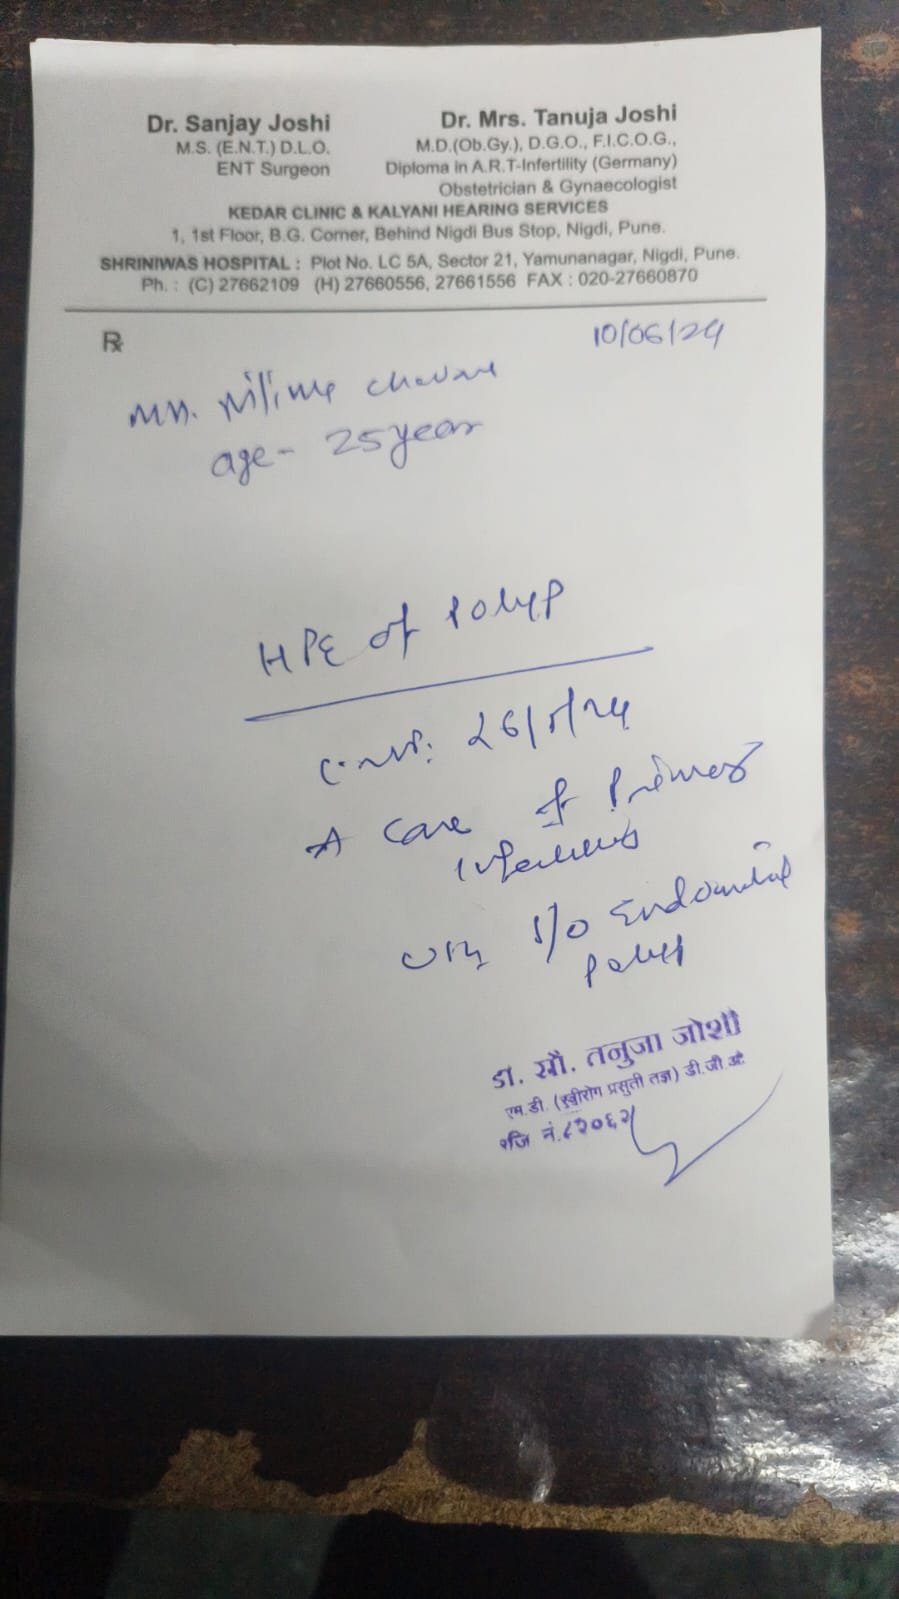 Dr. Sanjay Joshi
M.S. (E.N.T.) D.L.O.
ENT Surgeon
Dr. Mrs. Tanuja Joshi
M.D.(Ob.Gy.), D.G.O., F.I.C.O.G.,
Diploma in A.R.T-Infertility (Germany)
Obstetrician & Gynaecologist
KEDAR CLINIC & KALYANI HEARING SERVICES
1, 1st Floor, B.G. Corner, Behind Nigdi Bus Stop, Nigdi, Pune.
SHRINIWAS HOSPITAL : Plot No. LC 5A, Sector 21, Yamunanagar, Nigdi, Pune.
Ph. : (C) 27662109 (H) 27660556, 27661556 FAX : 020-27660870
℞
10/06/24
age - 25 year
HPE of Polyp
26/5/24
A case of Primary
Infertility
S/o Endometrial
Polyp
डॉ. सौ. तनुजा जोशी
एम.डी. (स्त्रीरोग प्रसुती तज्ञ) डी.जी.ओ.
रजि नं.